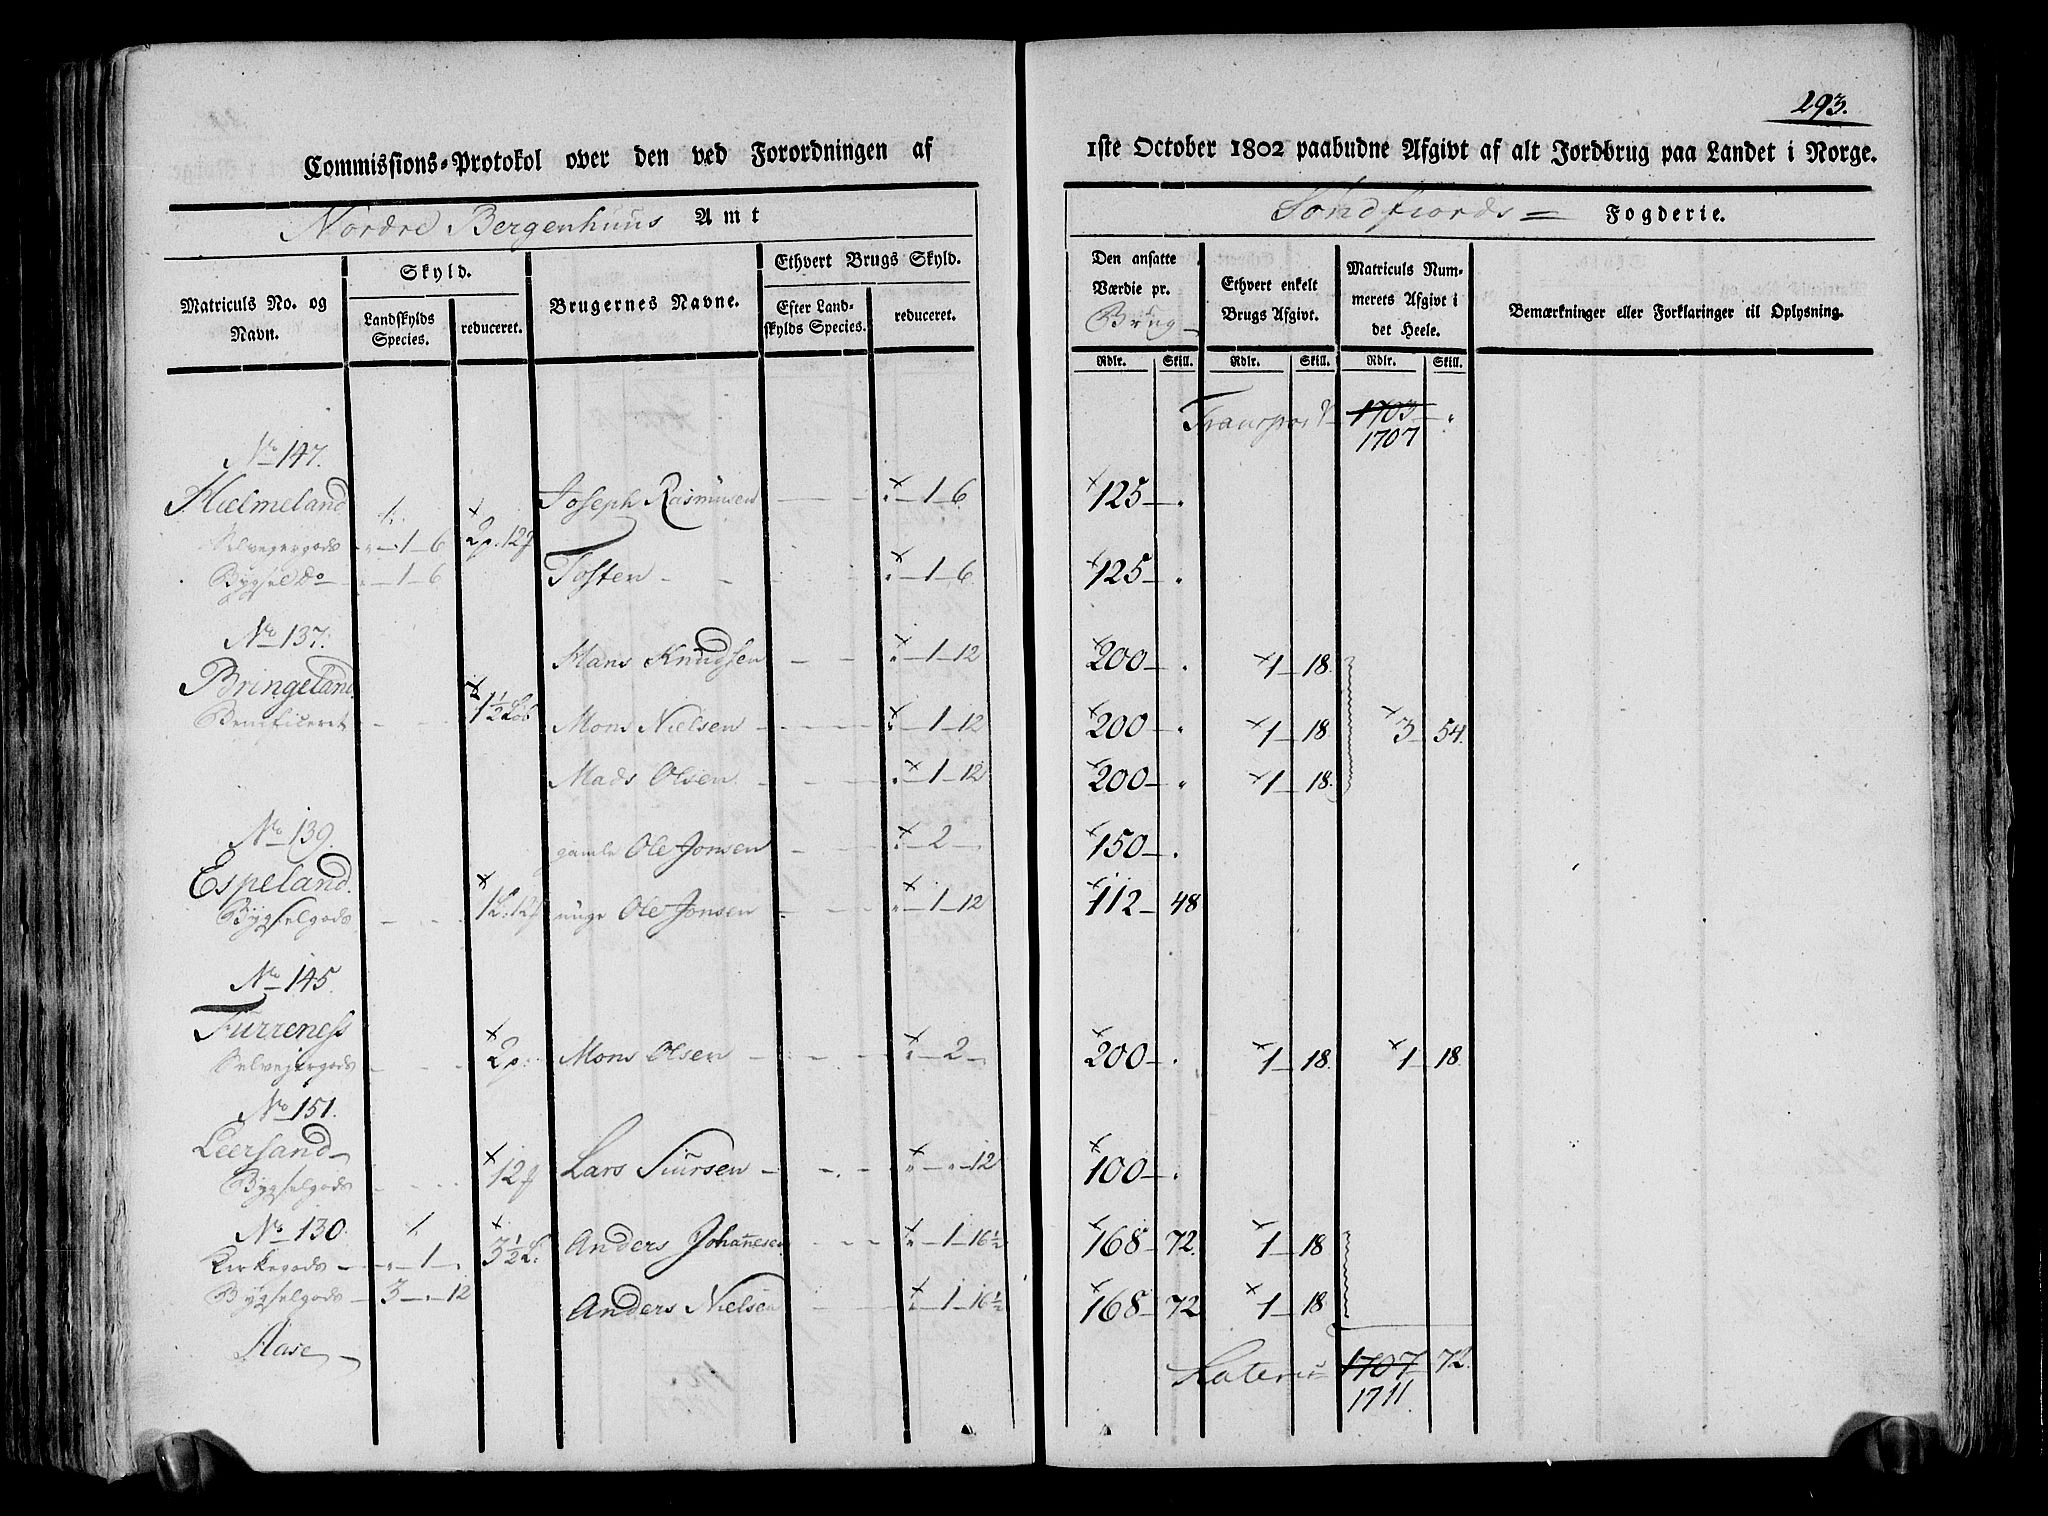 293.
Commissions-Protokol over den ved Forordningen af 1ste October 1802 paabudne Afgivt af alt Jordbrug paa Landet i Norge.
Nordre Bergenhuus Amt
Söndfiords Fogderie.
Matriculs No. og Navn.
Skyld.
Landskylds Species.
reduceret.
Brugernes Navne.
Ethvert Brugs Skyld.
Efter Landskylds Species.
reduceret.
Den ansatte Værdie pr. Brug
Ethvert enkelt Brugs Afgivt.
Matriculs Nummerets Afgivt i det Heele.
Bemærkninger eller Forklaringer til Oplysning.
Rdlr. Skill. Rdlr. Skill. Rdlr. Skill.
Transport 1703 "
1707
No 147.
Hielmeland Joseph Rasmusen " 1 6 125 "
Selvejergods " 1 6 2p. 12
Bygsel do " 1 6 Tosten " 1 6 125 "
No 137.
Hans Knudsen " 1 12 200 " 1 18
Bringeland
Beneficeret 1½ Mons Nielsen " 1 12 200 " 1 18 3 54.
Mads Olsen " 1 12 200 " 1 18.
No 139.
gamle Ole Jonsen " 2 150 "
Espeland.
Bygselgods 12 unge Ole Jonsen " 1 12 112 48
No 145.
Furreness
Selvejergods 2p. Mons Olsen " 2 200 " 1 18. 1 18.
No 151.
Leersand
Bygselgods 12 Lars Siursen " " 12 100 "
No 130.
Kirkegods " 1 3½ Anders Johannesen " 1 16½ 168 72. 1 18
Bygselgods 3 " 12 Anders Nielsen " 1 16½ 168 72 1 18.
Aase
Lateris 1707 72.
1711.